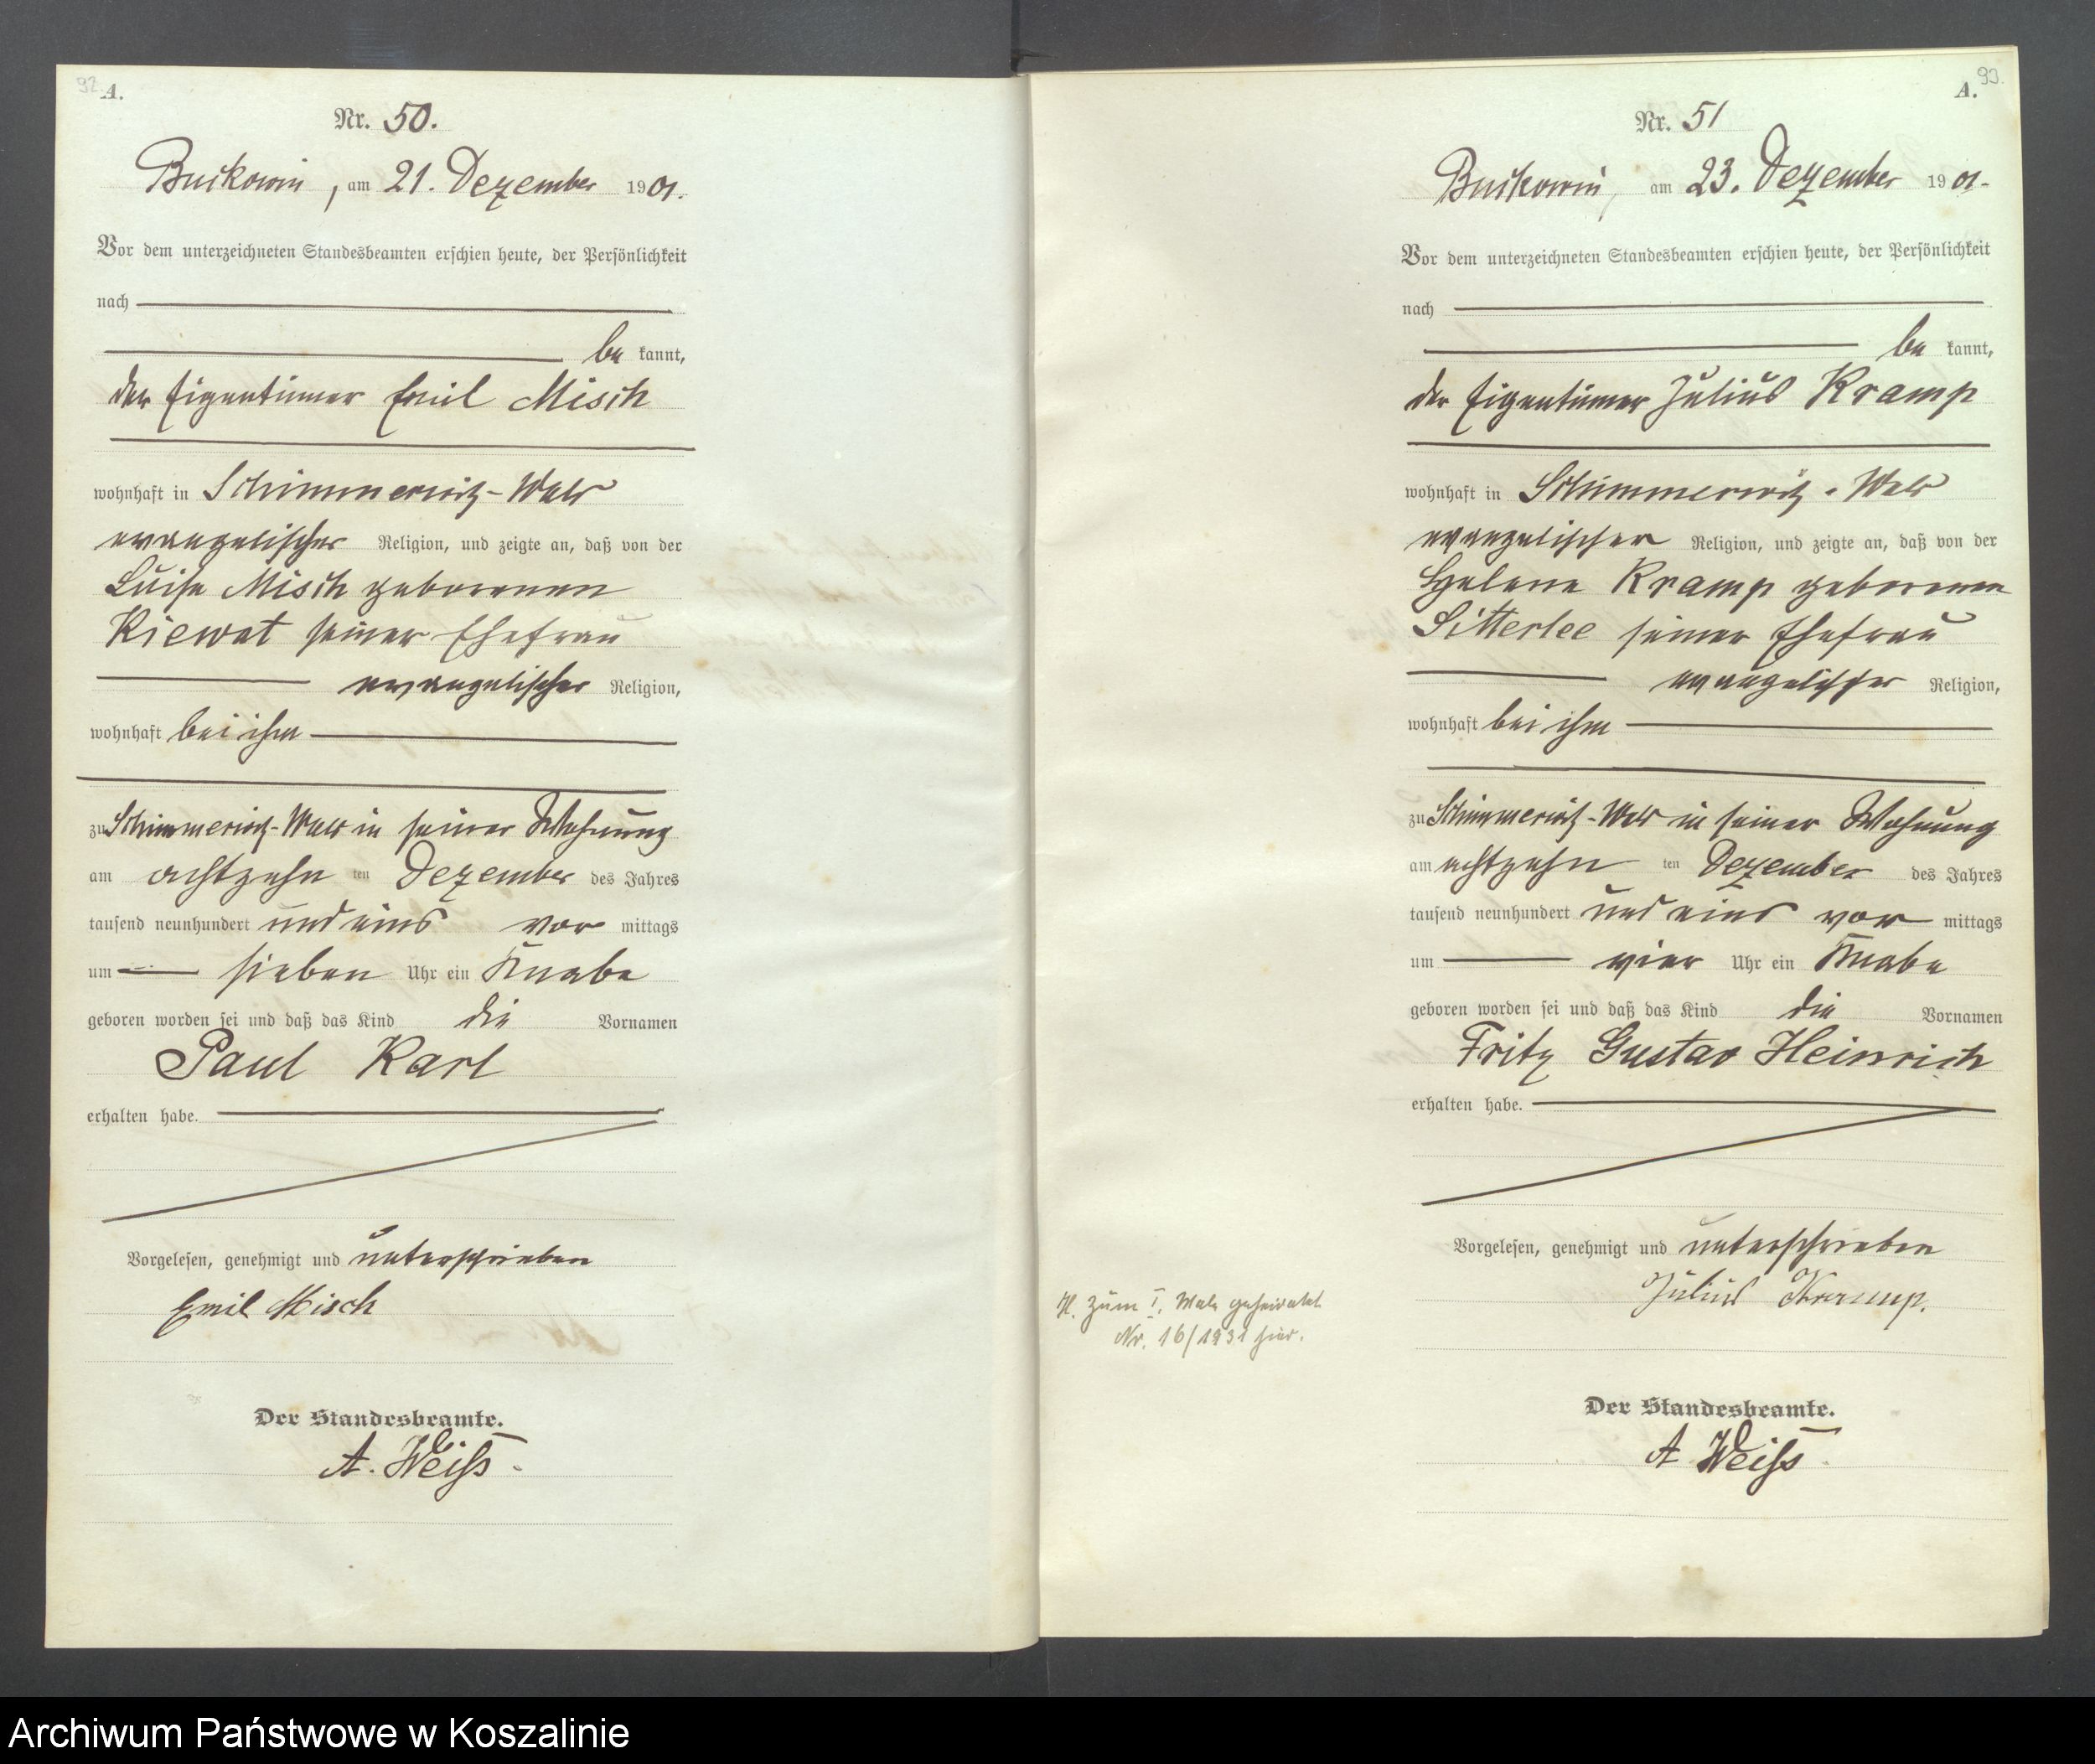 92
A.
Nr. 50.
Buckowin, am 21. Dezember 1901.
Vor dem unterzeichneten Standesbeamten erschien heute, der Persönlichkeit
nach
be kannt,
der Eigentümer Emil Misch
wohnhaft in Schimmerwitz-Wald
evangelischer Religion, und zeigte an, daß von der
Luise Misch geborenen
Kiewat seiner Ehefrau
evangelischer Religion,
wohnhaft bei ihm
zu Schimmerwitz-Wald in seiner Wohnung
am achtzehn ten Dezember des Jahres
tausend neunhundert und eins vor mittags
um sieben Uhr ein Knabe
geboren worden sei und daß das Kind die Vornamen
Paul Karl
erhalten habe.
Vorgelesen, genehmigt und unterschrieben
Emil Misch
Der Standesbeamte.
A. Weiß.
93.
A.
Nr. 51
Buckowin, am 23. Dezember 1901.
Vor dem unterzeichneten Standesbeamten erschien heute, der Persönlichkeit
nach
be kannt,
der Eigentümer Julius Kramp
wohnhaft in Schimmerwitz-Wald
evangelischer Religion, und zeigte an, daß von der
Helene Kramp geborenen
Sitterlee seiner Ehefrau
evangelischer Religion,
wohnhaft bei ihm
zu Schimmerwitz-Wald in seiner Wohnung
am achtzehn ten Dezember des Jahres
tausend neunhundert und eins vor mittags
um vier Uhr ein Knabe
geboren worden sei und daß das Kind die Vornamen
Fritz Gustav Heinrich
erhalten habe.
Vorgelesen, genehmigt und unterschrieben
Julius Kramp.
zum I. Male geheiratet
Nr. 16/1931 hier.
Der Standesbeamte.
A Weiß.
Archiwum Państwowe w Koszalinie